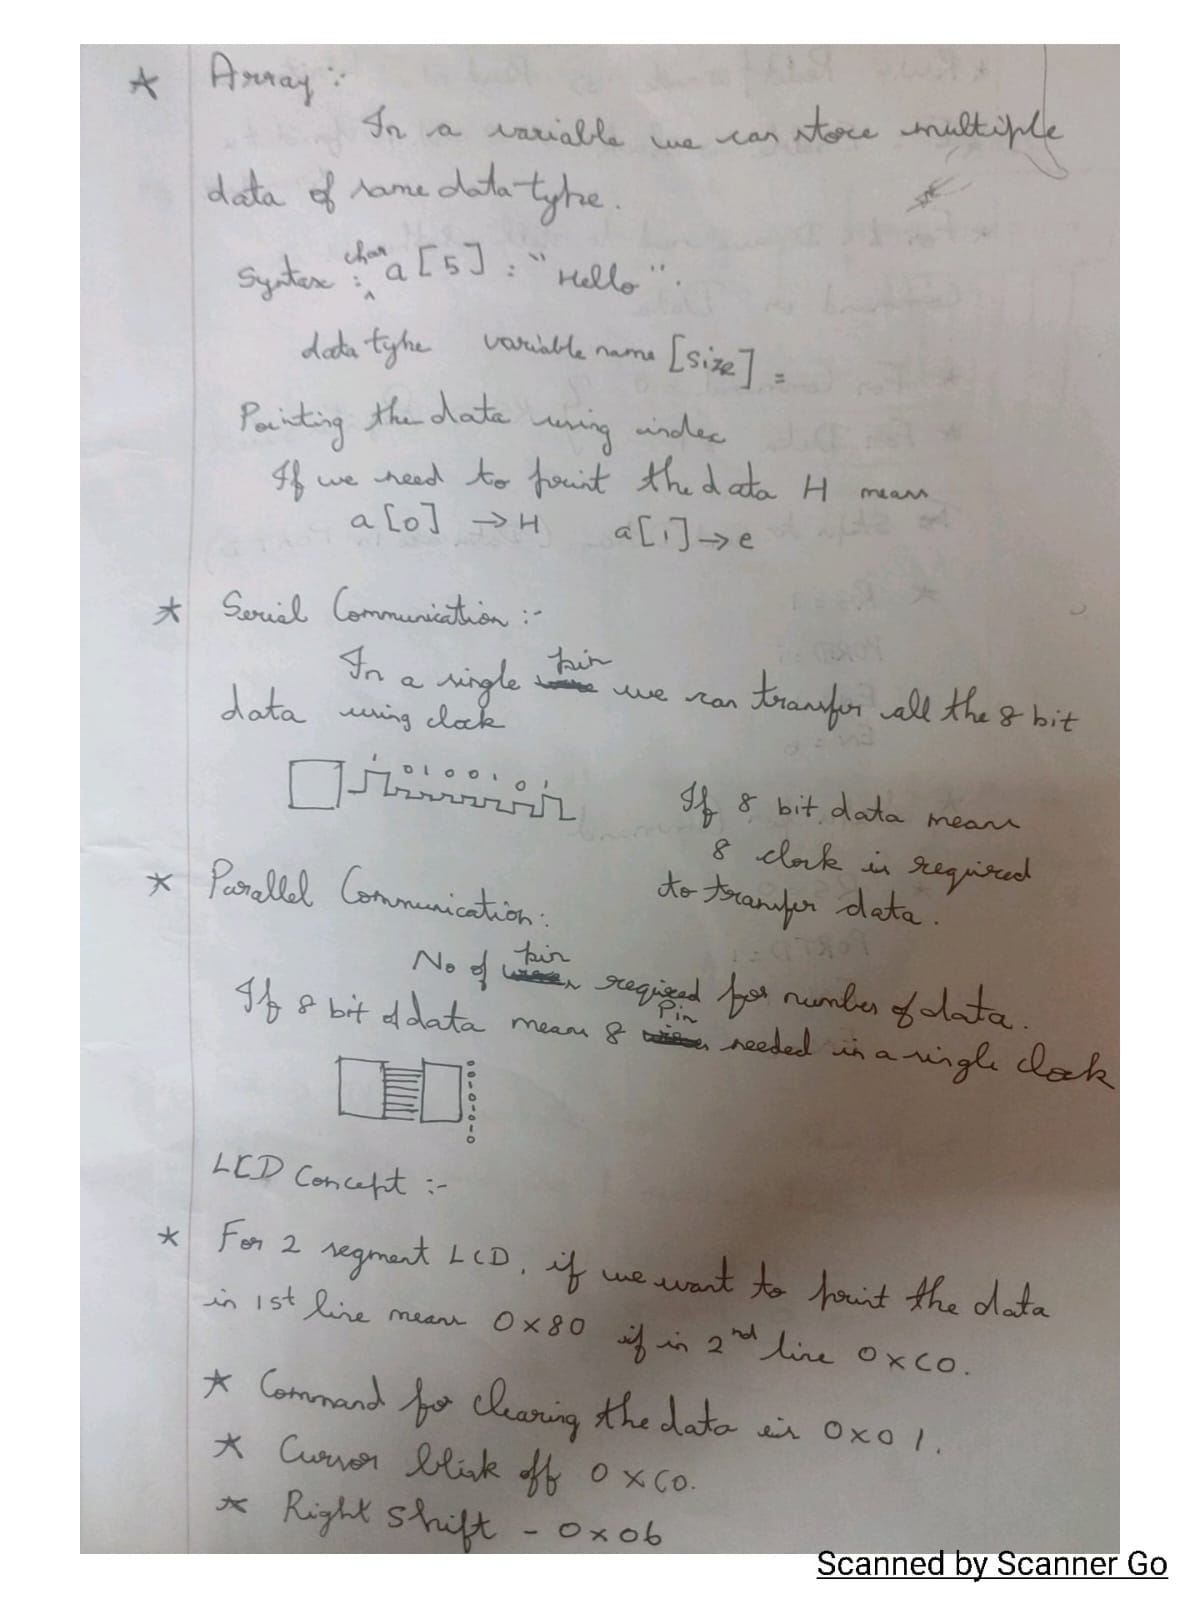 * Array :-
In a variable we can store multiple
data of same data type.
Syntax : char a [5] : "Hello".
data type variable name [size] =
Pointing the data using index
If we need to print the data H means
a[0] → H a[1] → e
* Serial Communication :-
In a single pin we can transfer all the 8 bit
data using clock
1 0 1 0 0 1 0 1
If 8 bit data means
8 clock is required
to transfer data.
* Parallel Communication :
No of pin required for number of data.
If 8 bit of data means 8 Pin needed in a single clock
LCD Concept :-
* For 2 segment LCD, if we want to print the data
in 1st line means 0x80 if in 2nd line 0xC0.
* Command for clearing the data is 0x01.
* Cursor blink off 0xC0.
* Right shift - 0x06
Scanned by Scanner Go